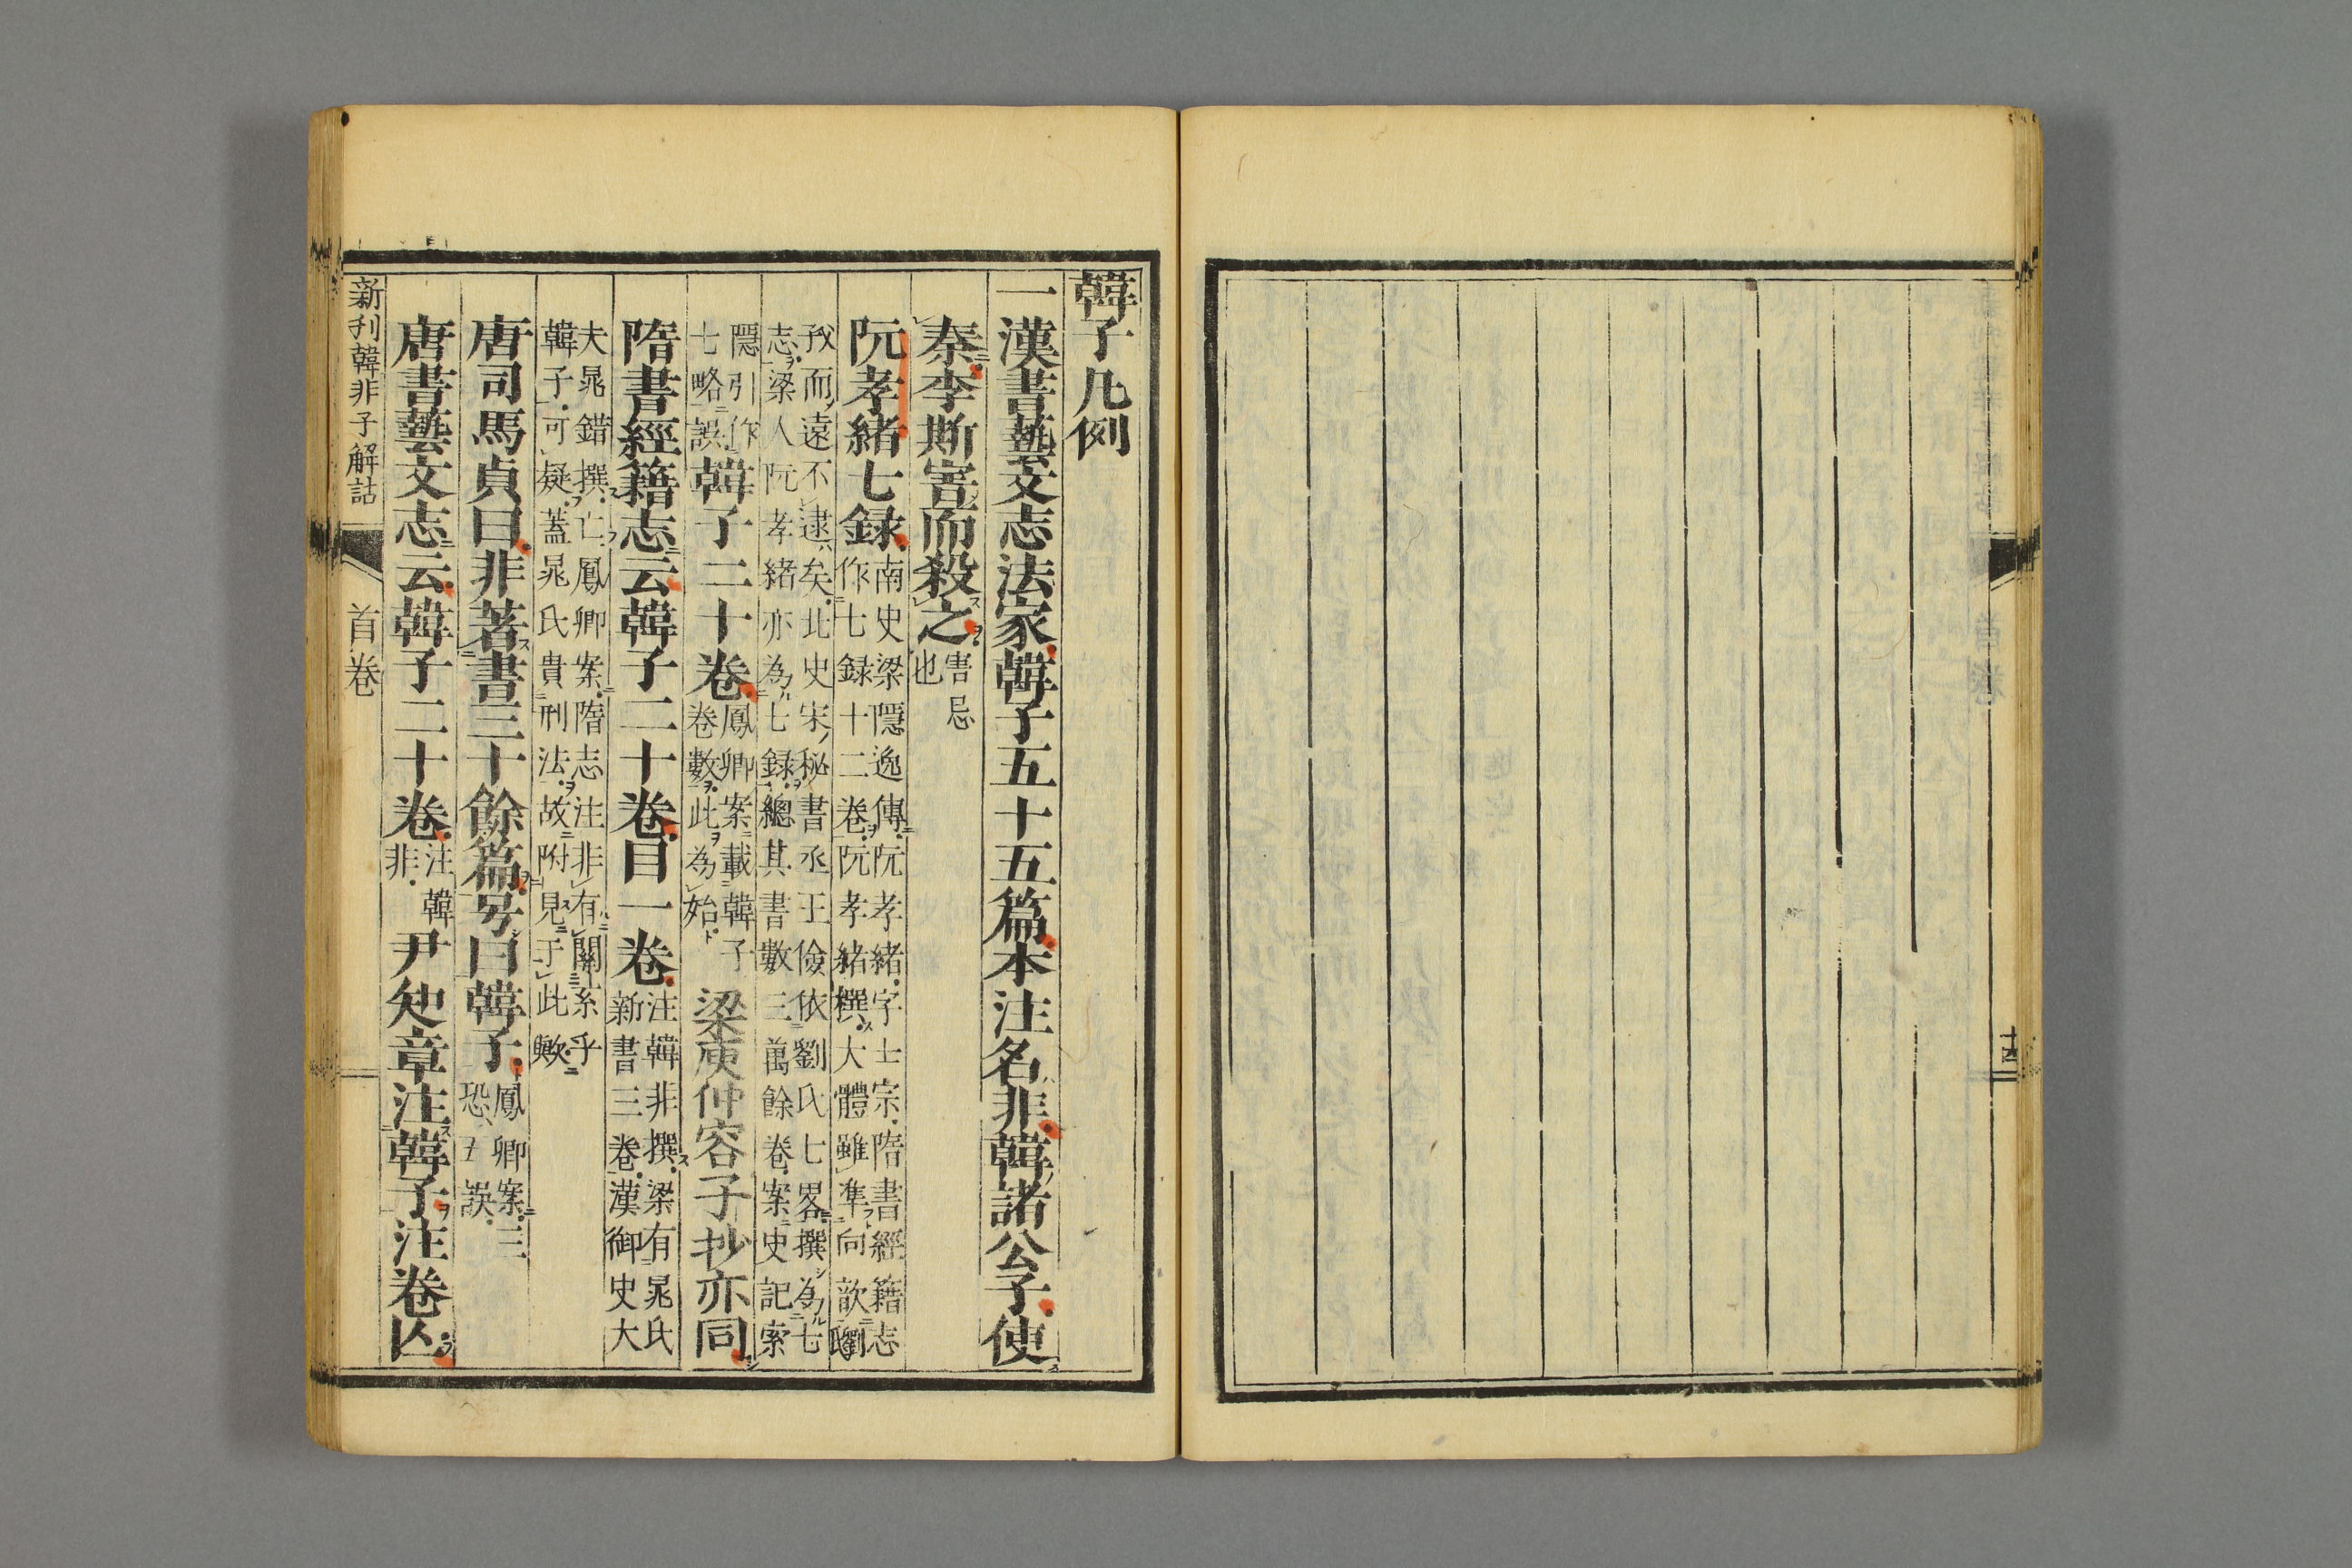 十四
韓子凡例
一漢書藝文志法家韓子五十五篇本注名非韓諸公子使
秦李斯害而殺之害忌也
阮孝緒七録南史梁隱逸傳阮孝緒字士宗隋書經籍志作七録十二卷阮孝緒撰大體雖準向歆劉氏
我而遠不逮矣北史宋秘書丞王儉依劉氏七畧撰為七志梁人阮孝緒亦為七録總其書數三萬餘卷案史記索
隱引作七略誤韓子二十卷鳳卿案載韓子卷數此為始梁庾仲容子抄亦同
隋書經籍志云韓子二十卷目一卷注韓非撰梁有晁氏新書三卷漢御史大
夫晁錯撰亡鳳卿案隋志注非有關系乎韓子可疑蓋晁氏貴刑法故附見于此歟
唐司馬貞曰非著書三十餘篇号曰韓子鳳卿案三恐五誤
唐書藝文志云韓子二十卷注韓非尹知章注韓子注卷亾
新刊韓非子解詁 首卷